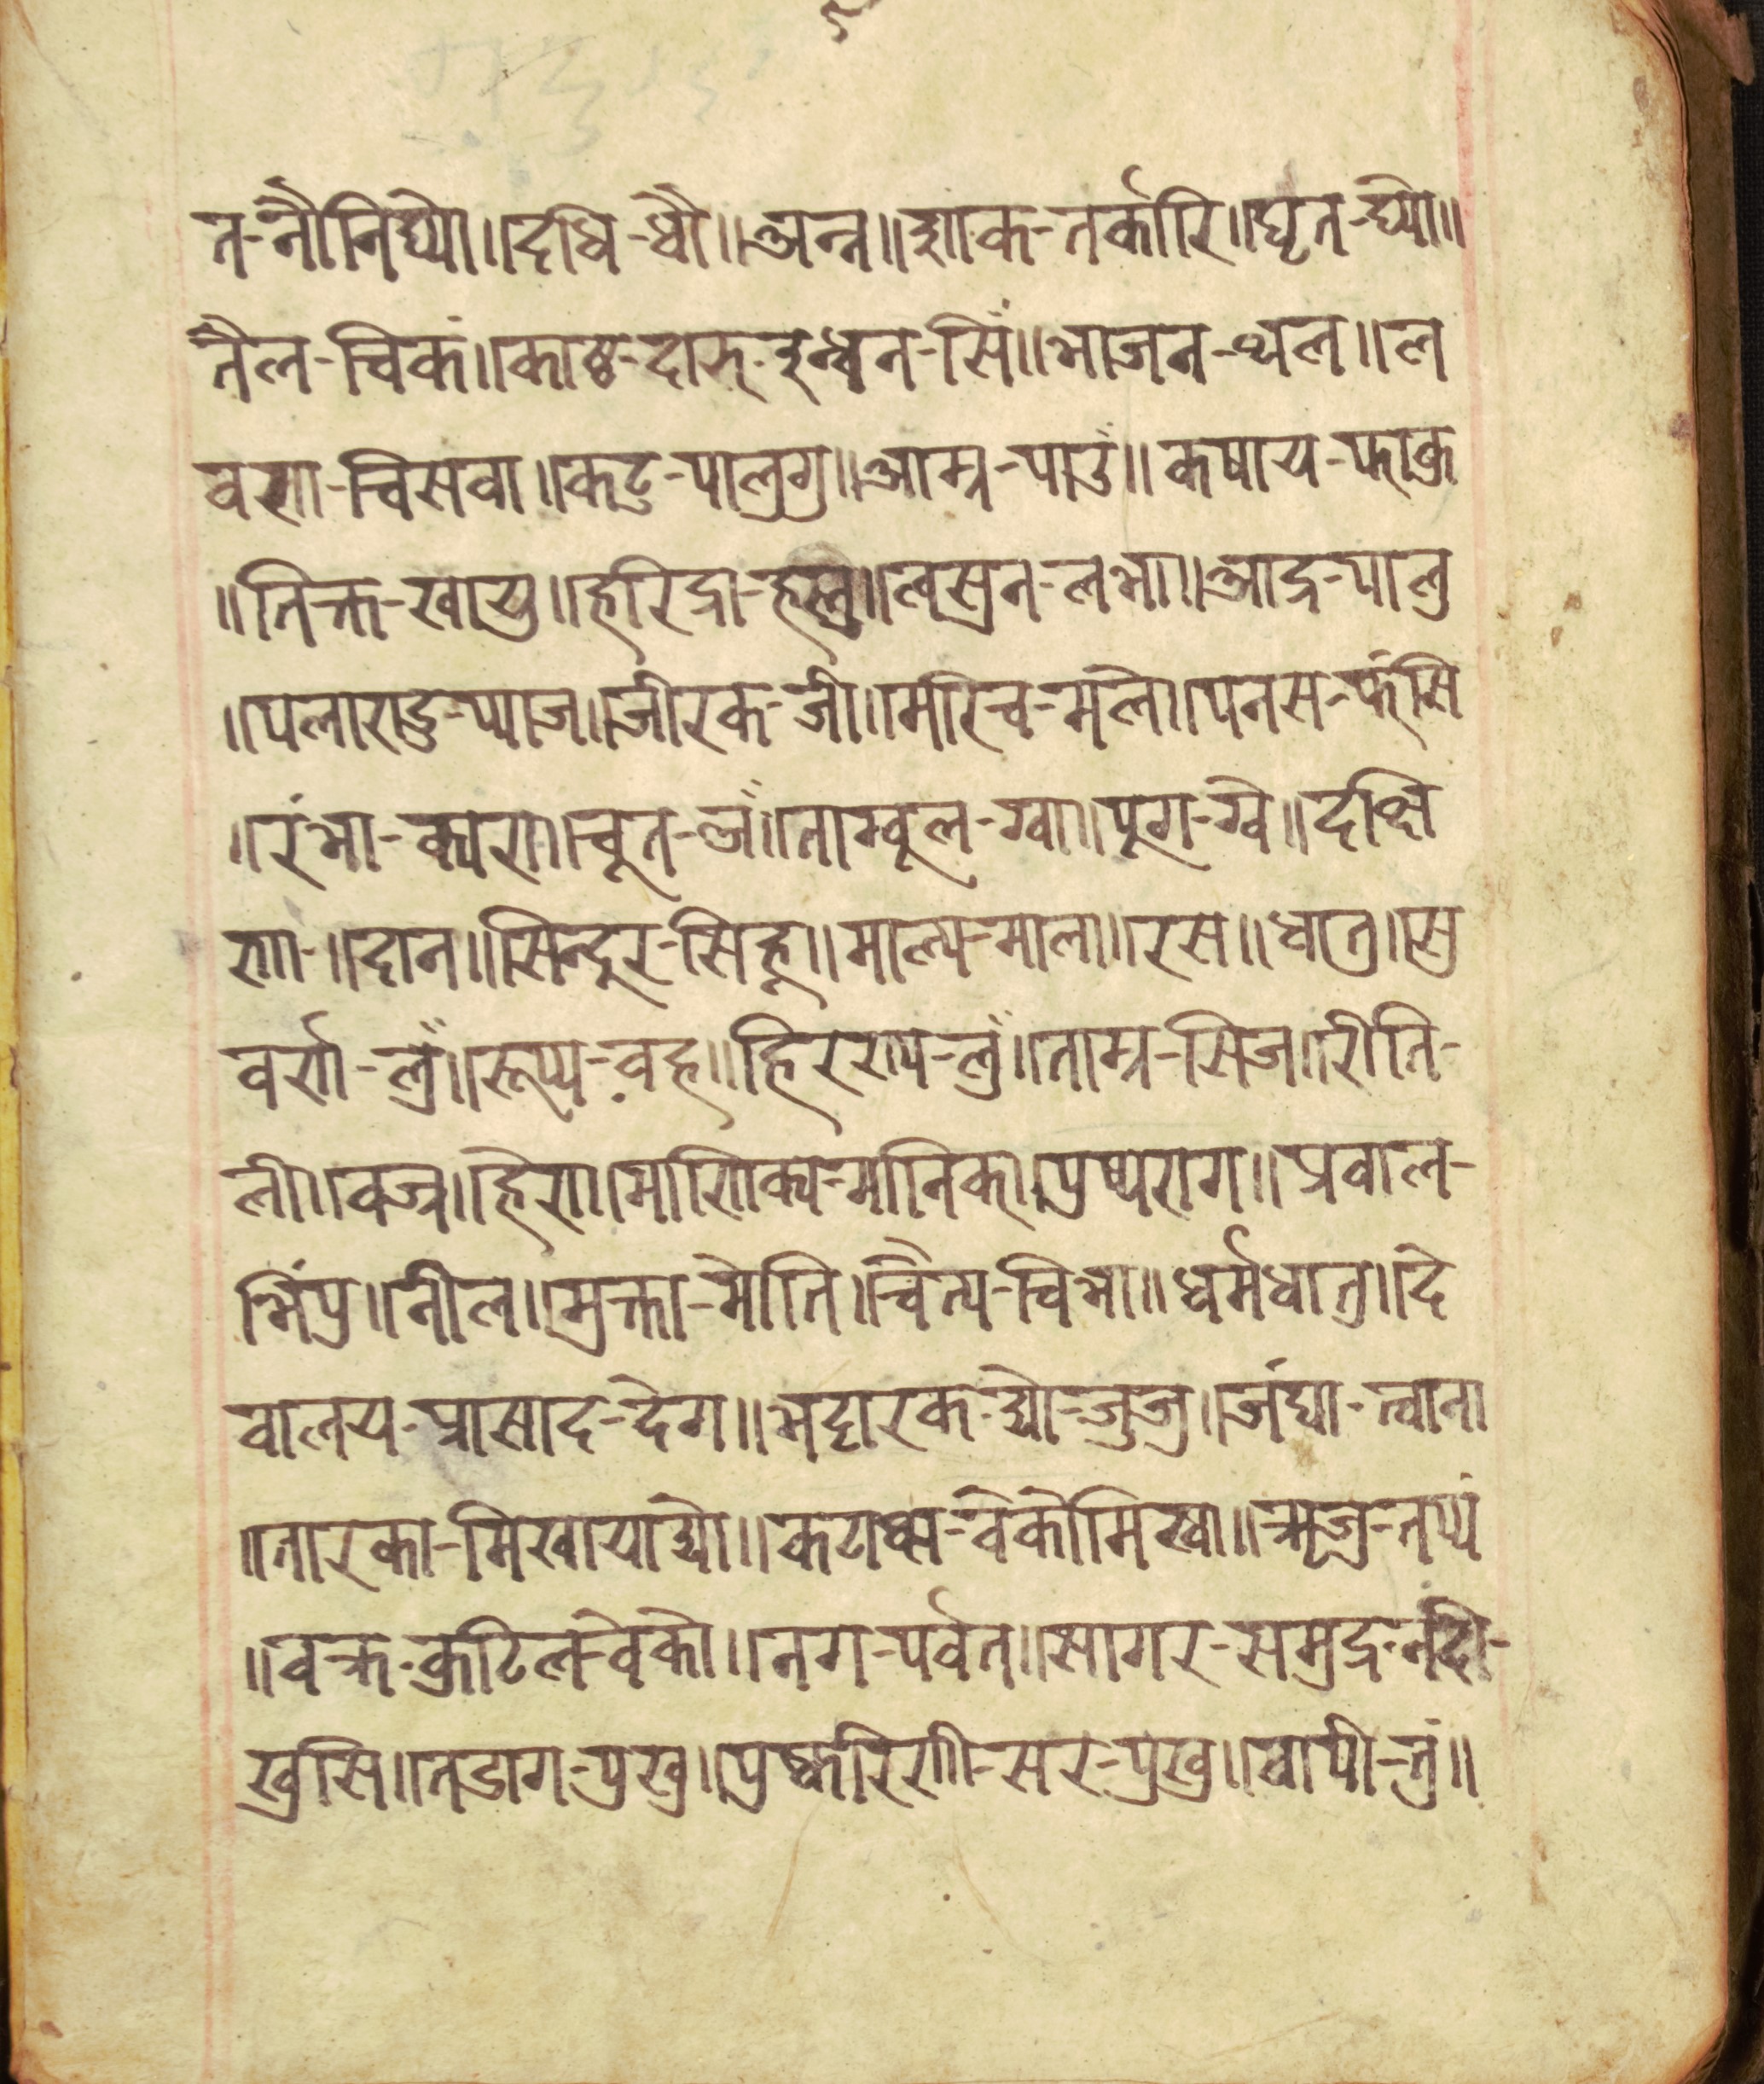 त-नौनिघ्यो॥दधि-धौ॥अन्न॥शाक-तर्कारि॥घृत-घ्यो॥
तैल-चिकं॥काष्ठ-दारु-इन्धन-सिं॥भाजन-थल॥ल
वण-चिसवा॥कटु-पालुगु॥आम्र-पाउं॥कषाय-फाकु
॥तिक्त-खायु॥हरिद्रा-हलु॥लसुन-लभा॥आद्र-पालु
॥पलाण्डु-प्याज॥जीरक-जी॥मरिच-मले॥पनस-फंसि
॥रंभा-क्यरा॥चूत-अँ॥ताम्बूल-ग्वा॥पूग-ग्वे॥दक्षि
णा-॥दान॥सिन्दुर-सिह्र॥माल्य-माला॥रस॥धातु॥सु
वर्ण-लुँ॥रूप्य-वह॥हिरण्य-लुँ॥ताम्र-सिज॥रीति-
ली॥वज्र॥हिरा॥माणिक्य-मानिक॥पुष्पराग॥प्रवाल-
भिंपु॥नील॥मुक्ता-मोति॥चैत्य-चिभा॥धर्मधातु॥दे
वालय-प्रासाद-देग॥भट्टारक-द्यो-जुजु॥जंघा-त्वाना
॥तारका-मिखायाद्यो॥कटाक्ष-वेकोमिखा॥ऋजु-तप्यं
॥वक्र-कुटिल-वेको॥नग-पर्वत॥सागर-समुद्र-नंदी-
खुसि॥तडाग-पुखु॥पुष्करिणी-सर-पुखु॥वापी-तुं॥